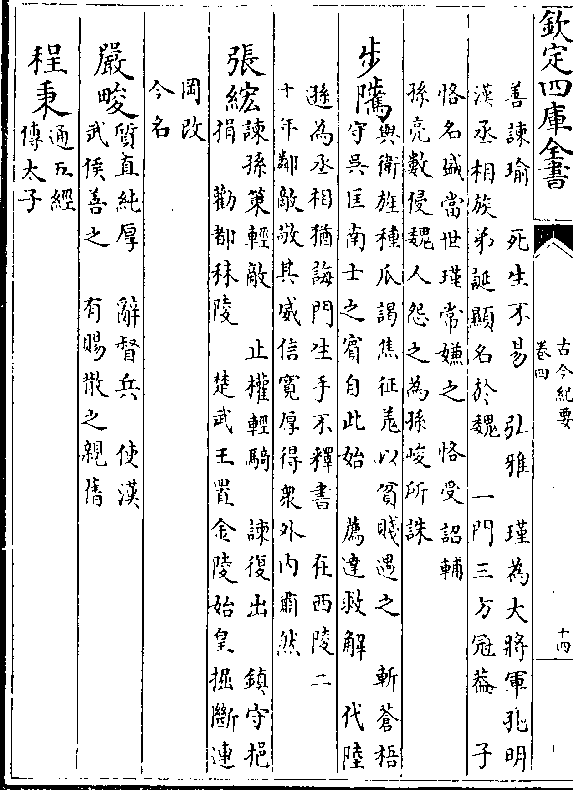 欽定四庫全書
古今紀要
卷四
十四
善諫瑜　死生不易　弘雅　瑾為大將軍孔明
漢丞相族弟誕顯名於魏　一門三方冠蓋　子
恪名盛當世瑾常嫌之　恪受詔輔
孫亮數侵魏人怨之為孫峻所誅
步騭
與衛旌種瓜謁焦征羗以貧賤遇之　斬蒼梧
守吳巨南士之賓自此始　薦達救解　代陸
遜為丞相猶誨門生手不釋書　在西陵二
十年鄰敵敬其威信寬厚得衆外内肅然
張紘
諫孫策輕敵　止權輕騎　諫復出　鎮守挹
損　勸都秣陵　楚武王置金陵始皇掘斷連
岡改
今名
嚴畯
質直純厚　辭督兵　使漢
武侯善之　有賜散之親倩
程秉
通五經
傅太子